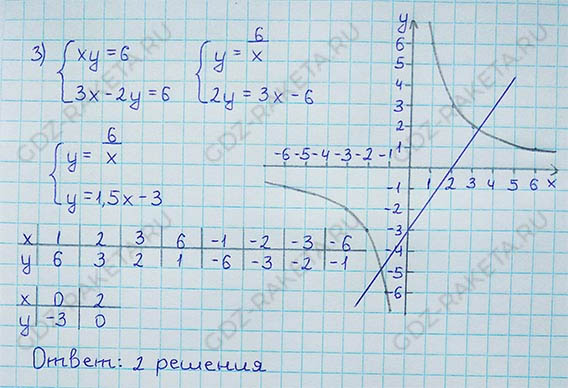 3) { xy = 6 { y = 6/x
{ 3x - 2y = 6 { 2y = 3x - 6
{ y = 6/x
{ y = 1,5x - 3
x | 1 | 2 | 3 | 6 | -1 | -2 | -3 | -6
y | 6 | 3 | 2 | 1 | -6 | -3 | -2 | -1
x | 0 | 2
y | -3 | 0
Ответ: 2 решения
y
6
5
4
3
2
1
-6 -5 -4 -3 -2 -1
1 2 3 4 5 6 x
-1
-2
-3
-4
-5
-6
GDZ-RAKETA.RU